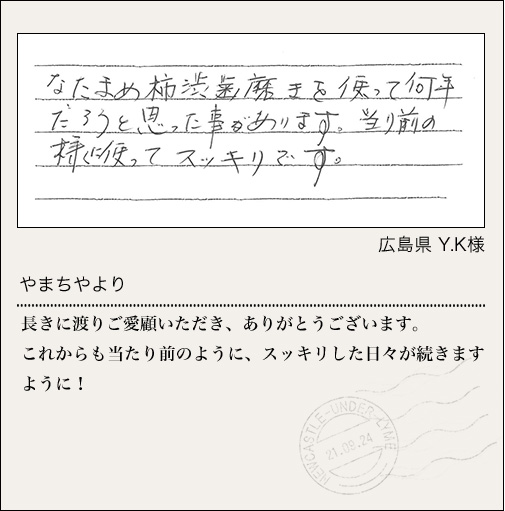 なたまめ柿渋歯磨きを使って何年
だろうと思った事があります。当り前の
様に使ってスッキリです。
広島県 Y.K様
やまちやより
長きに渡りご愛顧いただき、ありがとうございます。
これからも当たり前のように、スッキリした日々が続きます
ように！
NEWCASTLE-UNDER-LYME
21.09.24